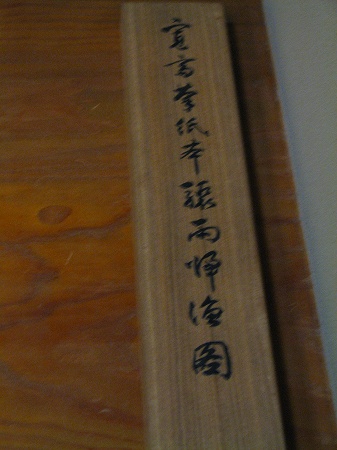 寛斎筆紙本驟雨帰漁図